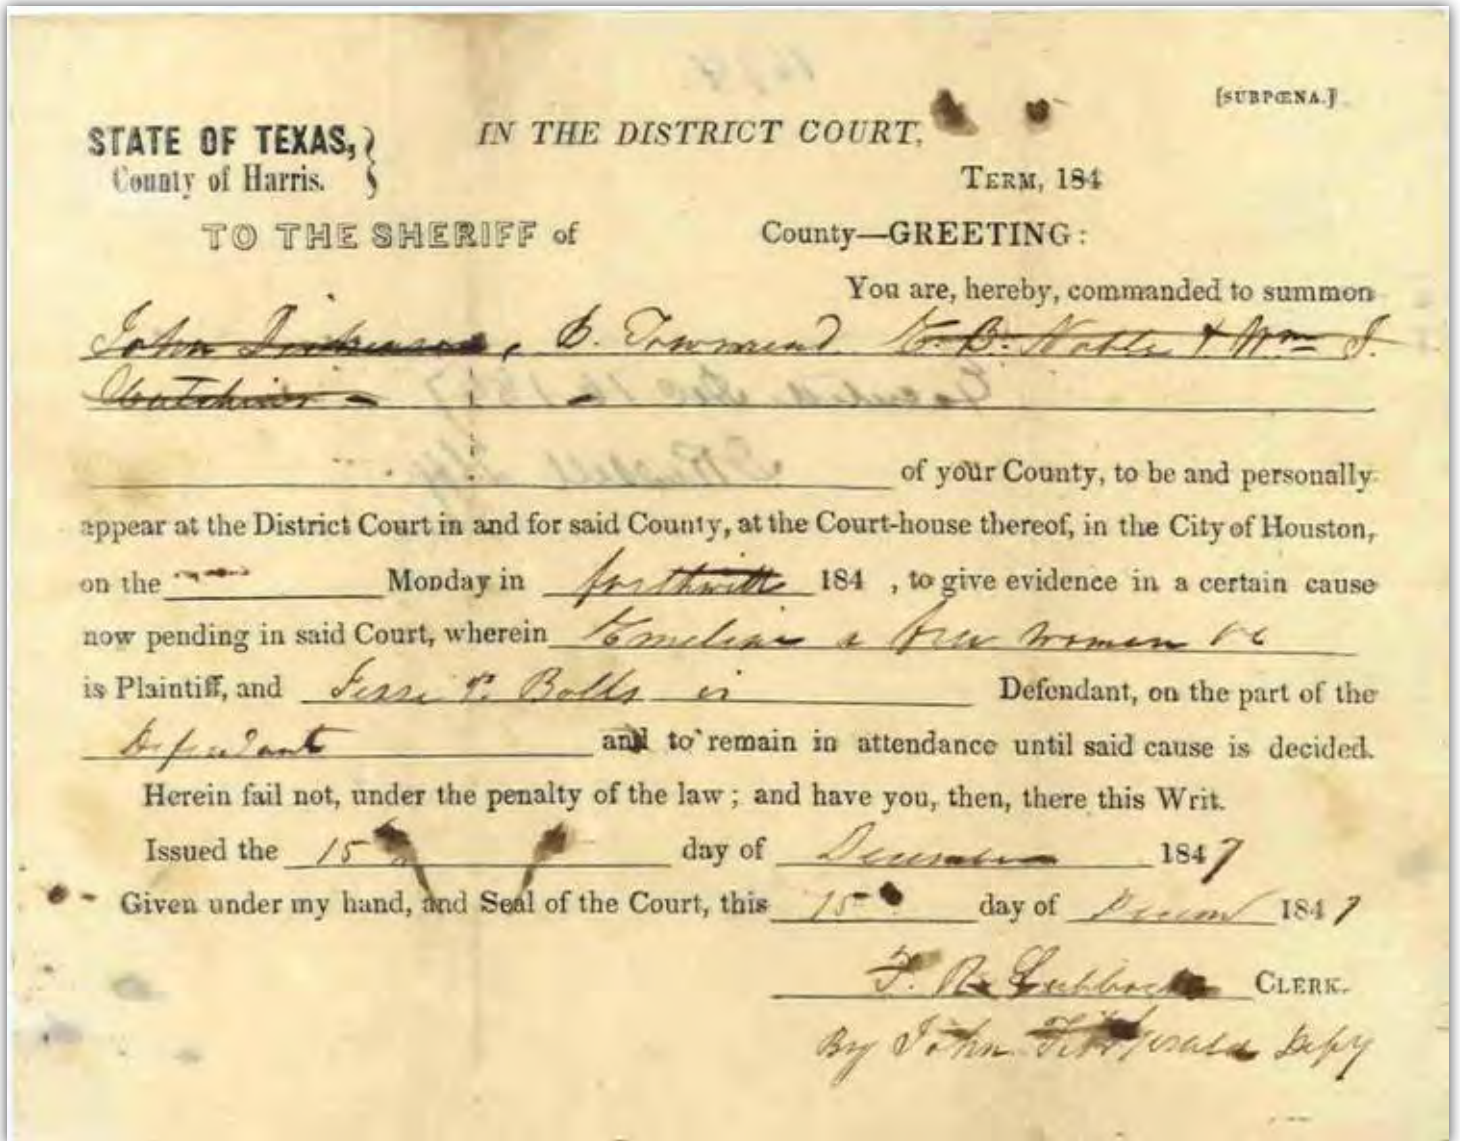 [SUBPŒNA.]
STATE OF TEXAS,
County of Harris.
IN THE DISTRICT COURT,
TERM, 184
TO THE SHERIFF of County—GREETING:
You are, hereby, commanded to summon
John Dickinson, B. Townsend E. B. Noble & Wm J.
Hutchins
of your County, to be and personally
appear at the District Court in and for said County, at the Court-house thereof, in the City of Houston,
on the Monday in forthwith 184 , to give evidence in a certain cause
now pending in said Court, wherein Emeline a free woman
is Plaintiff, and Jesse P. Bolls is Defendant, on the part of the
Defendant and to remain in attendance until said cause is decided.
Herein fail not, under the penalty of the law; and have you, then, there this Writ.
Issued the 15 day of December 1847
Given under my hand, and Seal of the Court, this 15 day of Decem 1847
F. R. Lubbock CLERK.
By John Fitzgerald Depy